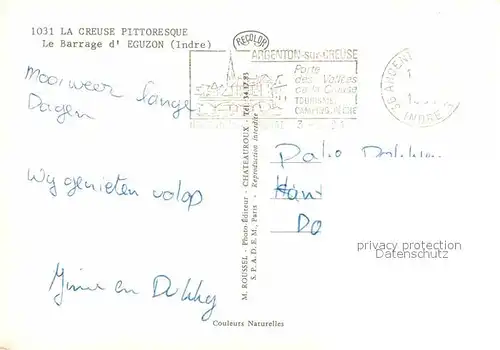 1031 LA CREUSE PITTORESQUE
Le Barrage d' EGUZON (Indre)
RECOLOR
ARGENTON-sur-CREUSE
Porte
des Vallées
de la Creuse
TOURISME
CAMPING, PÊCHE
36 ARGENT
INDRE
Mooi weer lange
Dagen
Wy genieten volop
en
M. ROUSSEL - Photo-Editeur - CHATEAUROUX - Tél. 34.17.93
S.P.A.D.E.M., Paris - Reproduction interdite
privacy protection
Datenschutz
Couleurs Naturelles